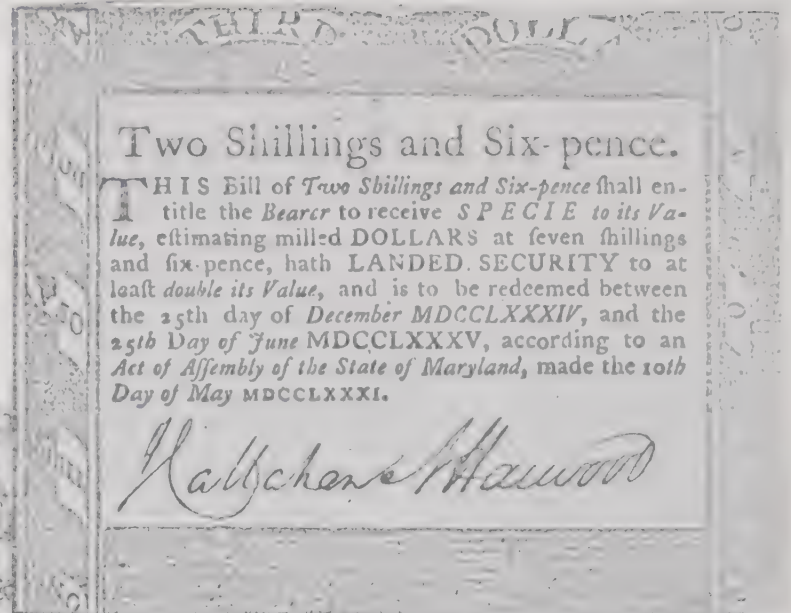 THIRD DOLL
Two Shillings and Six-pence.
THIS Bill of Two Shillings and Six-pence ſhall en-
title the Bearer to receive SPECIE to its Va-
lue, eſtimating milled DOLLARS at ſeven ſhillings
and ſix-pence, hath LANDED SECURITY to at
leaſt double its Value, and is to be redeemed between
the 25th day of December MDCCLXXXIV, and the
25th Day of June MDCCLXXXV, according to an
Act of Aſſembly of the State of Maryland, made the 10th
Day of May MDCCLXXXI.
Harwood